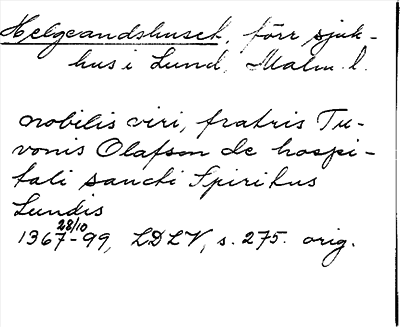 Helgeandshuset, förr sjuk-
hus i Lund, Malm. l.
nobilis viri, fratris Tu-
vonis Olafson de hospi-
tali sancti Spiritus
Lundis
28/10
1367-99, LDLV, s. 275. orig.